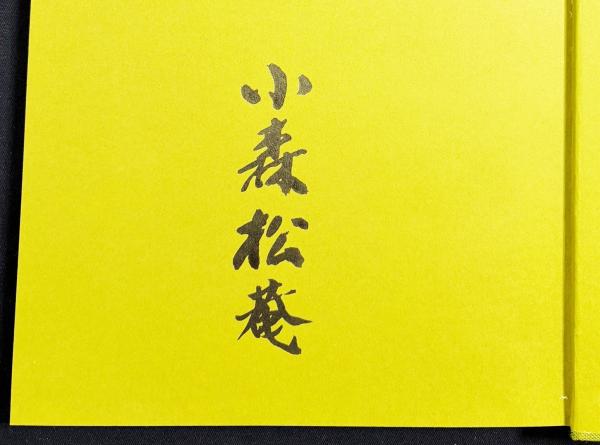 小森松菴